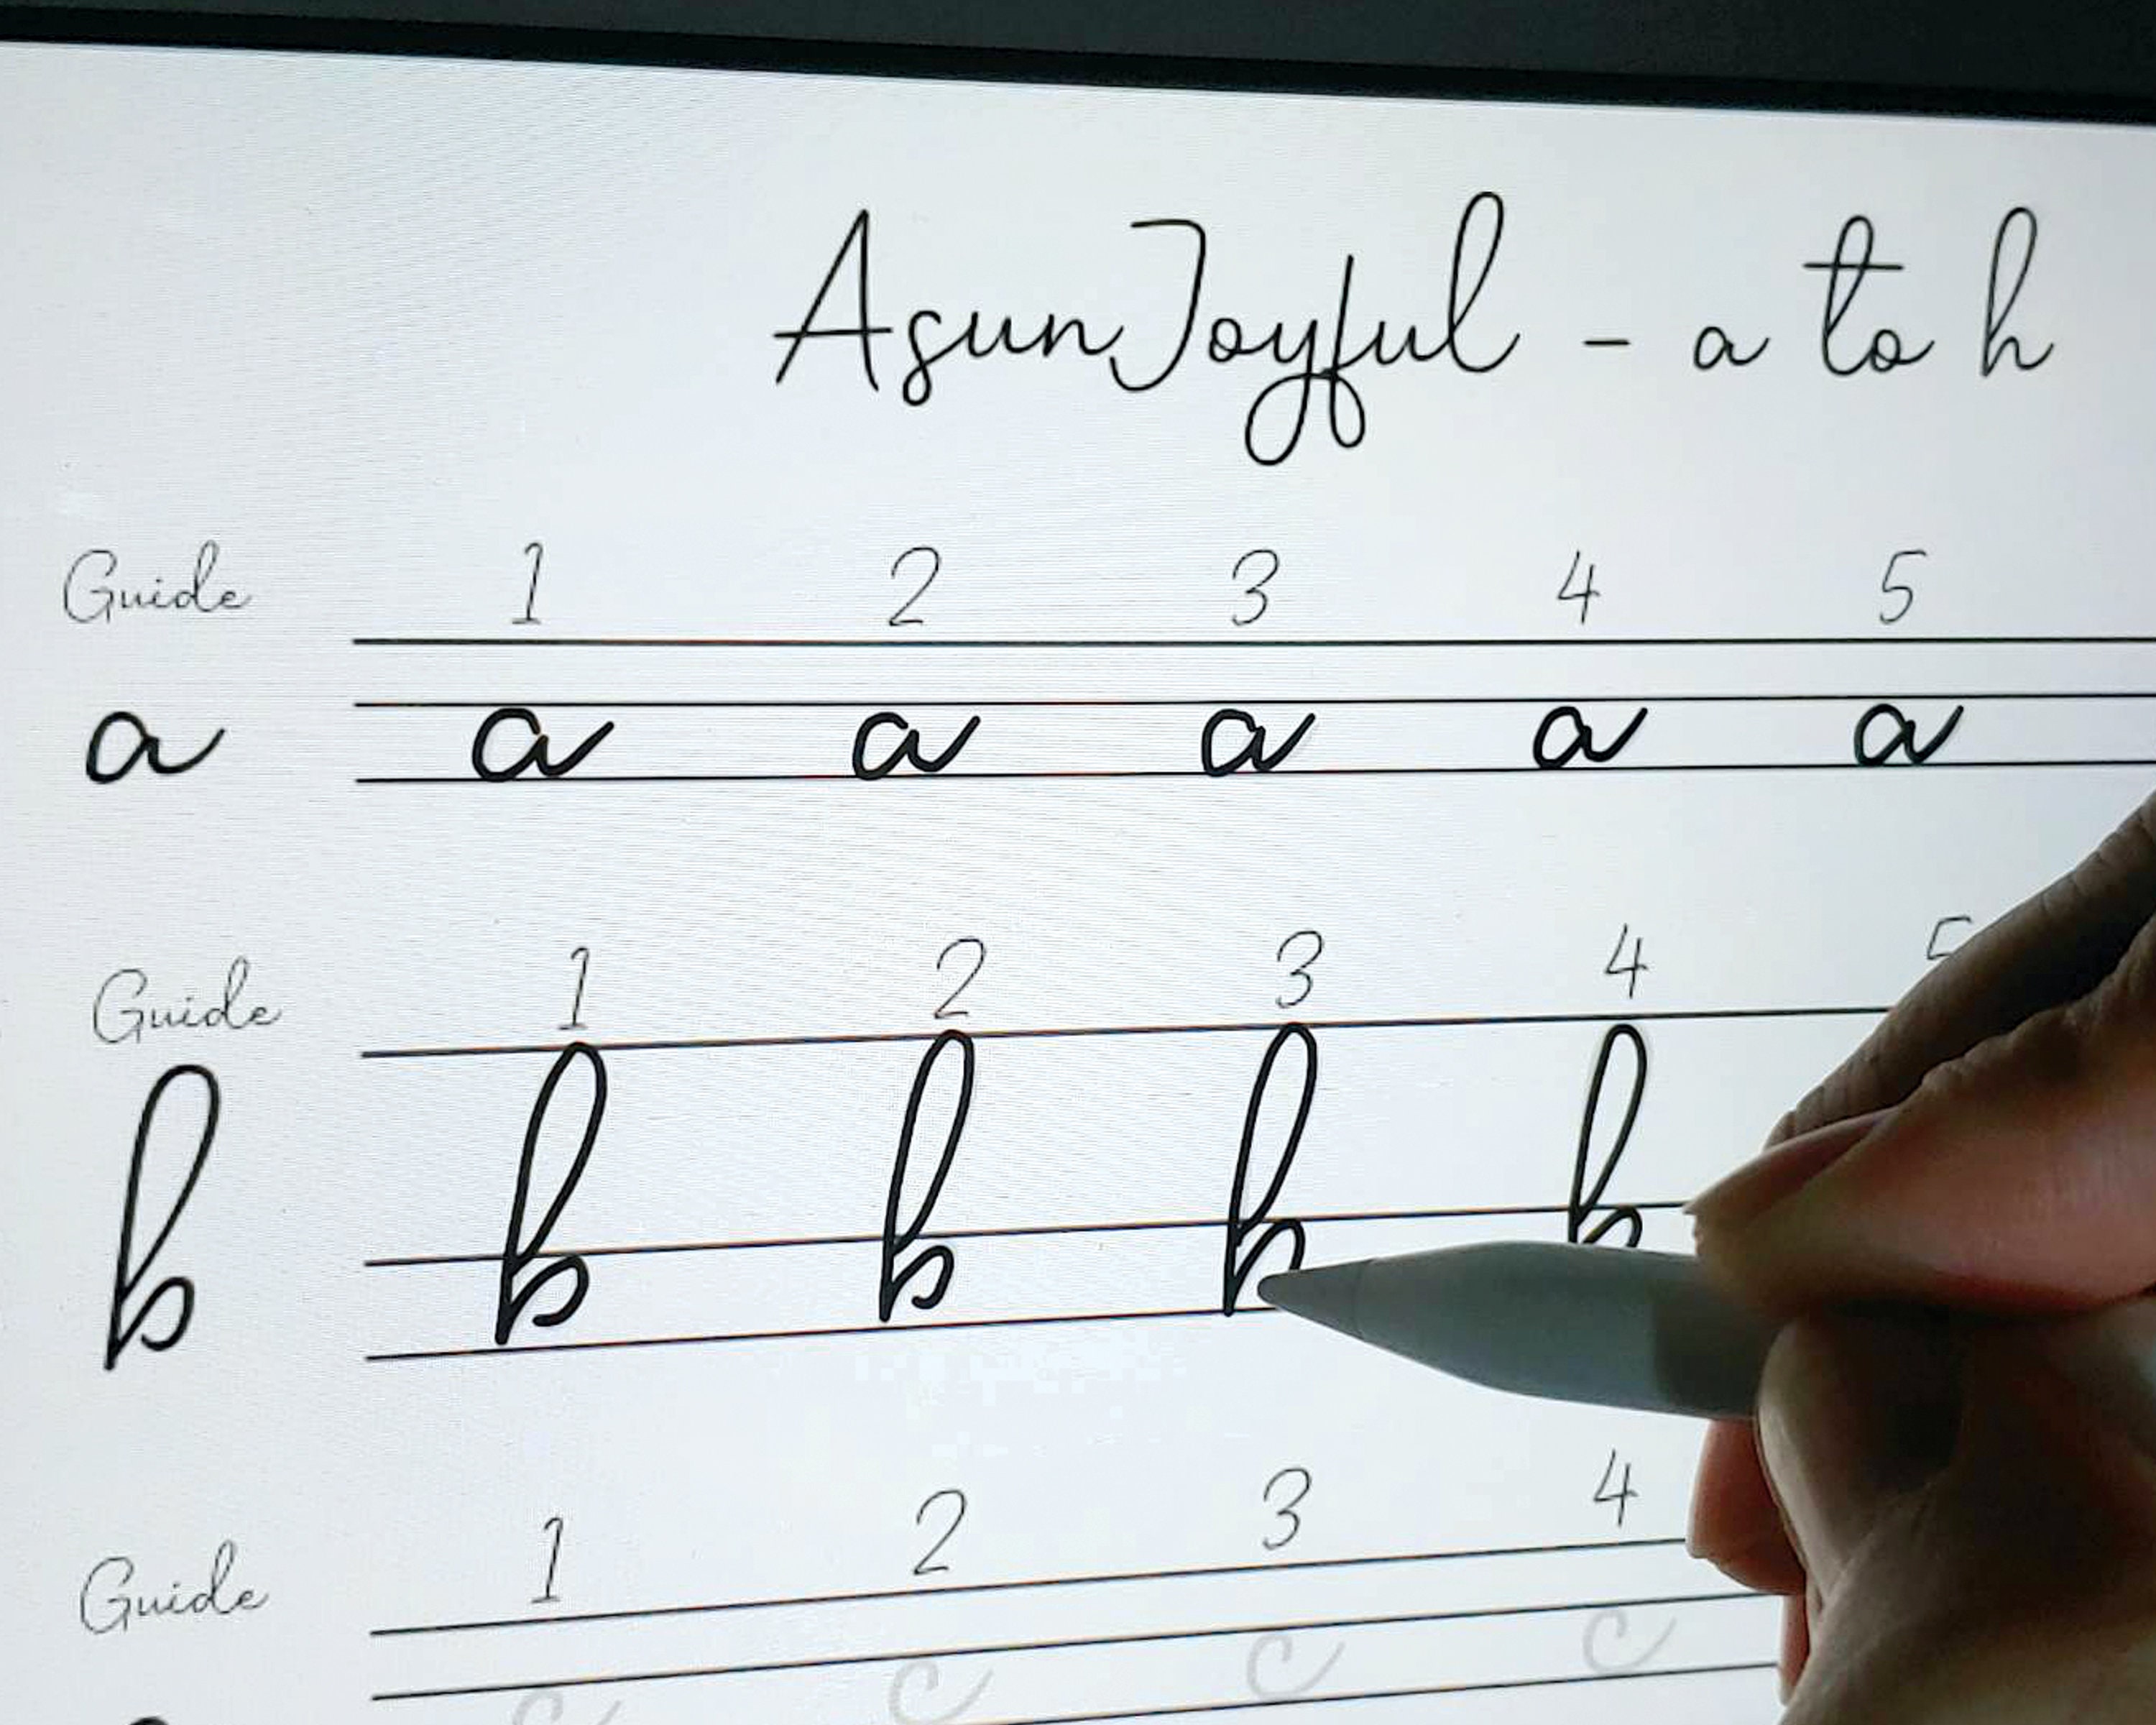 AsunJoyful - a to h
Guide 1 2 3 4 5
a a a a a a
Guide 1 2 3 4 5
b b b b b
Guide 1 2 3 4
c c c c